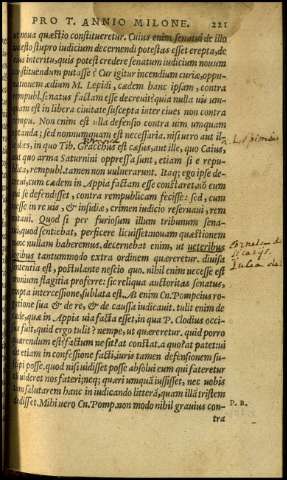 PRO T. ANNIO MILONE. 221
ut noua quæstio constitueretur. Cuius enim senatui de illo
ipso stupro iudicium decernendi potestas esset erepta, de
interitu, quis potest credere senatum iudicium nouum
constituendum putasse? Cur igitur incendium curiæ, oppu-
ædium M. Lepidi, cædem hanc ipsam, contra
rempubl. senatus factam esse decreuit? quia nulla uis un-
est in libera ciuitate suscepta inter ciues non contra
Non enim est ulla defensio contra uim unquam
optanda; sed nonnunquam est necessaria. nisi uero aut il-
dies, in quo Tib. Gracchus est cæsus, aut ille, quo Caius,
quo arma Saturnini oppressa sunt, etiam si e repu-
blica, rempubl. tamen non uulnerarunt. Itaq; ego ipse de-
creui, cum cædem in Appia factam esse constaret, nō eum
se defendisset, contra rempublicam fecisse: sed, cum
inesset in re uis, & insidiæ, crimen iudicio reseruaui, rem
notaui. Quod si per furiosum illum tribunum sena-
quod sentiebat, perficere licuisset: nouam quæstionem
nunc nullam haberemus. decernebat enim, ut ueteribus
legibus tantummodo extra ordinem quæreretur. diuisa
sententia est, postulante nescio quo. nihil enim necesse est
omnium flagitia proferre: sic reliqua auctoritas senatus,
empta intercessione, sublata est. At enim Cn. Pompeius ro-
gatione sua & de re, & de caussa iudicauit. tulit enim de
cæde, quæ in Appia uia facta esset, in qua P. Clodius occi-
sus fuit. quid ergo tulit? nempe, ut quæreretur. quid porro
quærendum est? factum ne sit? at constat. a quo? at patet. ui
dit etiam in confessione facti, iuris tamen defensionem su-
scipi posse. quod nisi uidisset posse absolui eum qui fateretur
cum uideret nos fateri; neq; quæri umquā iussisset, nec uobis
tam salutarem hanc in iudicando litterā, quam illā tristem
dedisset. Mihi uero Cn. Pomp. non modo nihil grauius con-
P. B.
tra